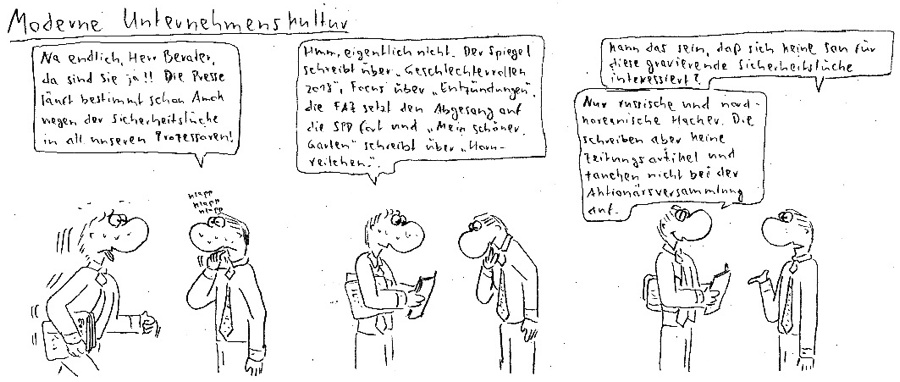 Moderne Unternehmenskultur
Na endlich, Herr Berater,
da sind sie ja!! Die Presse
läuft bestimmt schon Amok
wegen der Sicherheitslücke
in all unseren Prozessoren!
klapp
klapp
klapp
Hmm, eigentlich nicht. Der Spiegel
schreibt über "Geschlechterrollen
2018", Focus über "Entzündungen",
die FAZ setzt den Abgesang auf
die SPD fort und "Mein schöner
Garten" schreibt über "Horn-
veilchen".
Kann das sein, daß sich keine Sau für
diese gravierende Sicherheitslücke
interessiert?
Nur russische und nord-
koreanische Hacker. Die
schreiben aber keine
Zeitungsartikel und
tauchen nicht bei der
Aktionärsversammlung
auf.